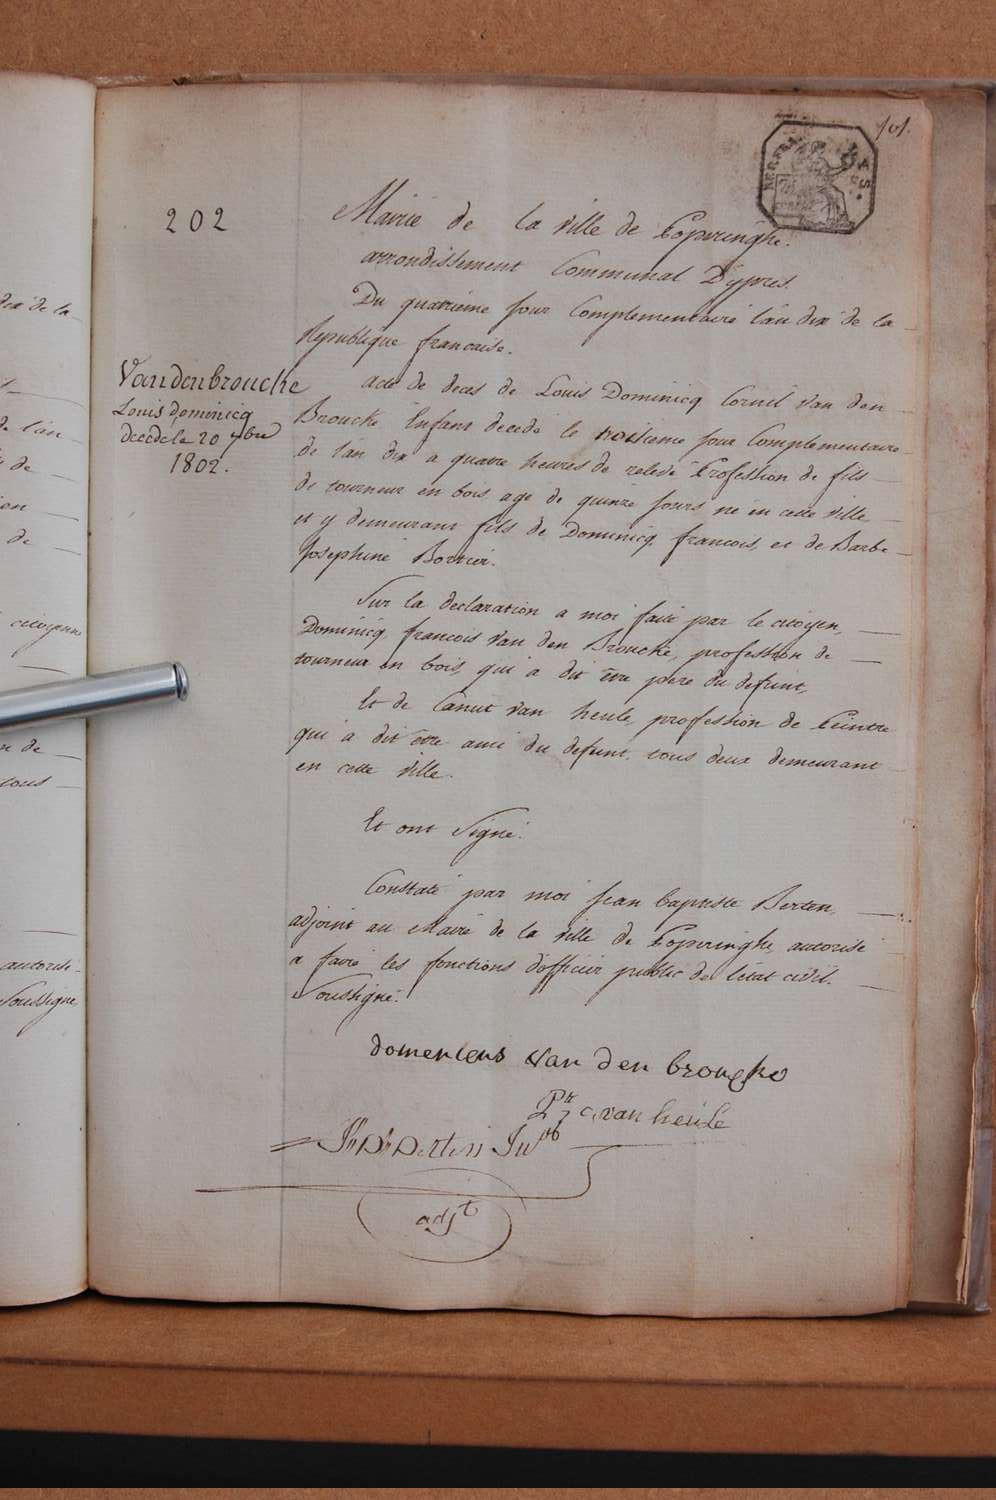 101.
202
Mairie de la ville de Poperinghe.
arrondissement Communal D'ypres.
Du quatrieme jour Complementaire l'an dix de la
Republique francaise.
Vandenbroucke
Louis Dominicq
decedé le 20 7bre
1802.
acte de deces de Louis Dominicq Cornil Van den
Broucke Enfant decedé le troisieme jour Complementaire
de l'an dix a quatre heures de relevé Profession de fils
de tourneur en bois agé de quinze jours né en cette ville
et y demeurant fils de Dominicq francois, et de Barbe
Josephine Bortier.
Sur la declaration a moi fait par le citoyen,
Dominicq francois Van den Broucke, profession de
tourneur en bois, qui a dit être pere du defunt,
Et de Canut van heule, profession de Peintre
qui a dit être ami du defunt, tous deux demeurant
en cette ville.
Et ont Signé.
Constaté par moi Jean baptiste Berten,
adjoint au Maire de la ville de Poperinghe autorisé
a faire les fonctions d'officier public de l'état civil.
Soussigné.
van den broucke
c. van heule
adjt
dix de la
de l'an
de
de
citoyen
de
tous
autorisé
Soussigné